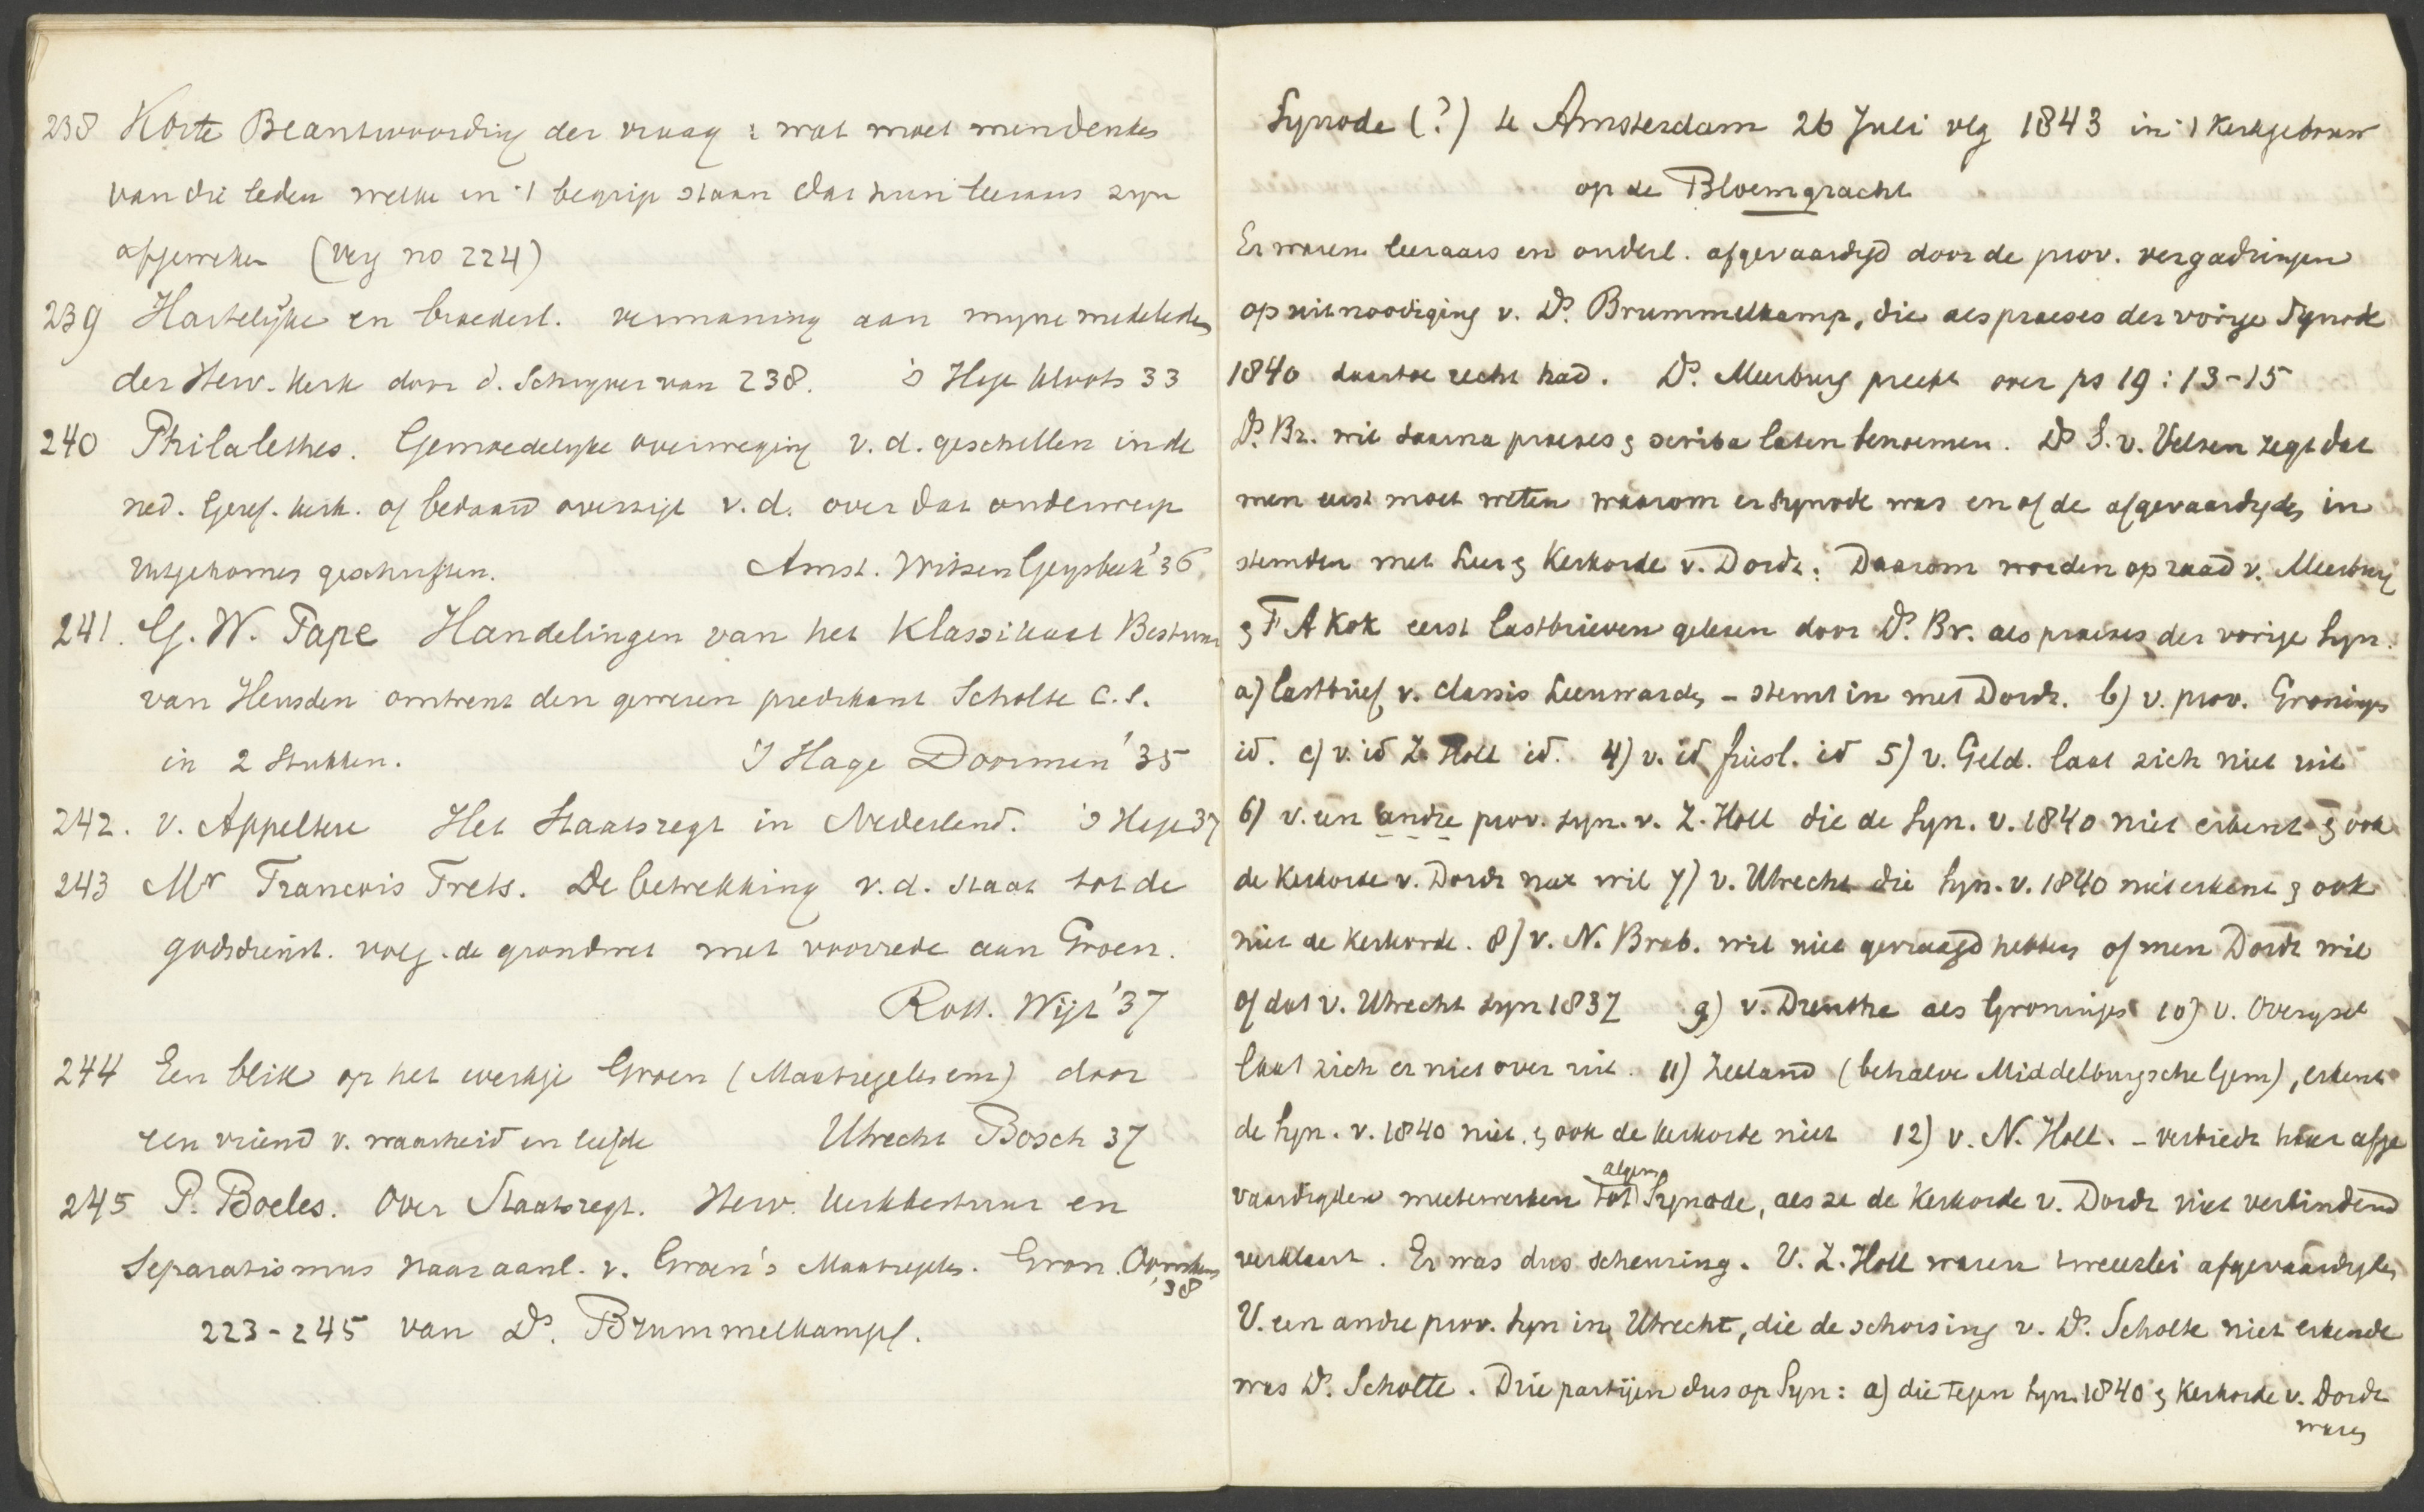 238 Korte Beantwoording der vraag : wat moet men denken
van die leden welke in 't begrip staan dat hun leeraars zyn
afgeweken (verg no 224)
239 Hartelijke en broederl. vermaning aan myne medeleden
der Herv. Kerk door d. Schryver van 238. 's Hage Kloots 33
240 Philalethes. Gemoedelyke overweging v. d. geschillen in de
ned. Geref. kerk. of bedaard overzigt v. d. over dat onderwerp
uitgekomen geschriften. Amst. Witsen Geysbeek '36
241. G. W. Pape Handelingen van het Klassikaal Bestuur
van Heusden omtrent den gewezen predikant Scholte c.s.
in 2 Stukken. 's Hage Doorman '35
242. v. Appeltere Het Staatsregt in Nederland. 's Hage 37
243 Mr Francois Frets. De betrekking v. d. Staat tot de
godsdienst. volg. de grondwet met voorrede aan Groen.
Rott. Wijt '37
244 Een blik op het werkje Groen (Maatregelen enz) door
een vriend v. waarheid en liefde Utrecht Bosch 37
245 P. Boeles. Over Staatsregt. Herv. Kerkbestuur en
Separatismus naar aanl. v. Groen's Maatregelen. Gron. Oomkens
'38
223-245 van Ds. Brummelkamp.
Synode (?) te Amsterdam 26 Juli vlg 1843 in 't Kerkgebouw
op de Bloemgracht
Er waren leeraars en onderl. afgevaardigd door de prov. vergadringen
op uitnoodiging v. Ds. Brummelkamp, die als praeses der vorige Synode
1840 daartoe recht had. Ds. Meerburg preekt over ps 19 : 13-15
Ds. Br. wil daarna praeses & scriba laten benoemen. Ds S. v. Velsen zegt dat
men eerst moet weten waarom er Synode was en of de afgevaardigden in
stemden met Leer & Kerkorde v. Dordr. Daarom worden op raad v. Meerburg
& F A Kok eerst lastbrieven gelezen door Ds. Br. als praeses der vorige Syn.
a) lastbrief v. classis Leeuwarden - stemt in met Dordr. b) v. prov. Groningen
id. c) v. id Z. Holl id. 4) v. id friesl. id 5) v. Geld. laat zich niet uit
6) v. een andre prov. syn. v. Z. Holl die de Syn. v. 1840 niet erkent & ook
de Kerkorde v. Dordr niet wil 7) v. Utrecht die Syn. v. 1840 niet erkent & ook
niet de Kerkorde. 8) v. N. Brab. wil niet gevraagd hebben of men Dordr wil
of dat v. Utrecht syn 1837 9) v. Drenthe als Groningen 10) v. Overysel
laat zich er niet over uit. 11) Zeeland (behalve Middelburgsche Gem), erkent
de Syn. v. 1840 niet, & ook de kerkorde niet 12) v. N. Holl. - verbiedt haar afge
vaardigden meetewerken tot algem Synode, als ze de Kerkorde v. Dordr niet verbindend
verklaart. Er was dus scheuring. V. Z. Holl waren tweeerlei afgevaardigden
V. een andre prov. Syn in Utrecht, die de schorsing v. Ds. Scholte niet erkende
was Ds. Scholte. Drie partijen dus op Syn: a) die tegen Syn. 1840 & Kerkorde v. Dordr
waren